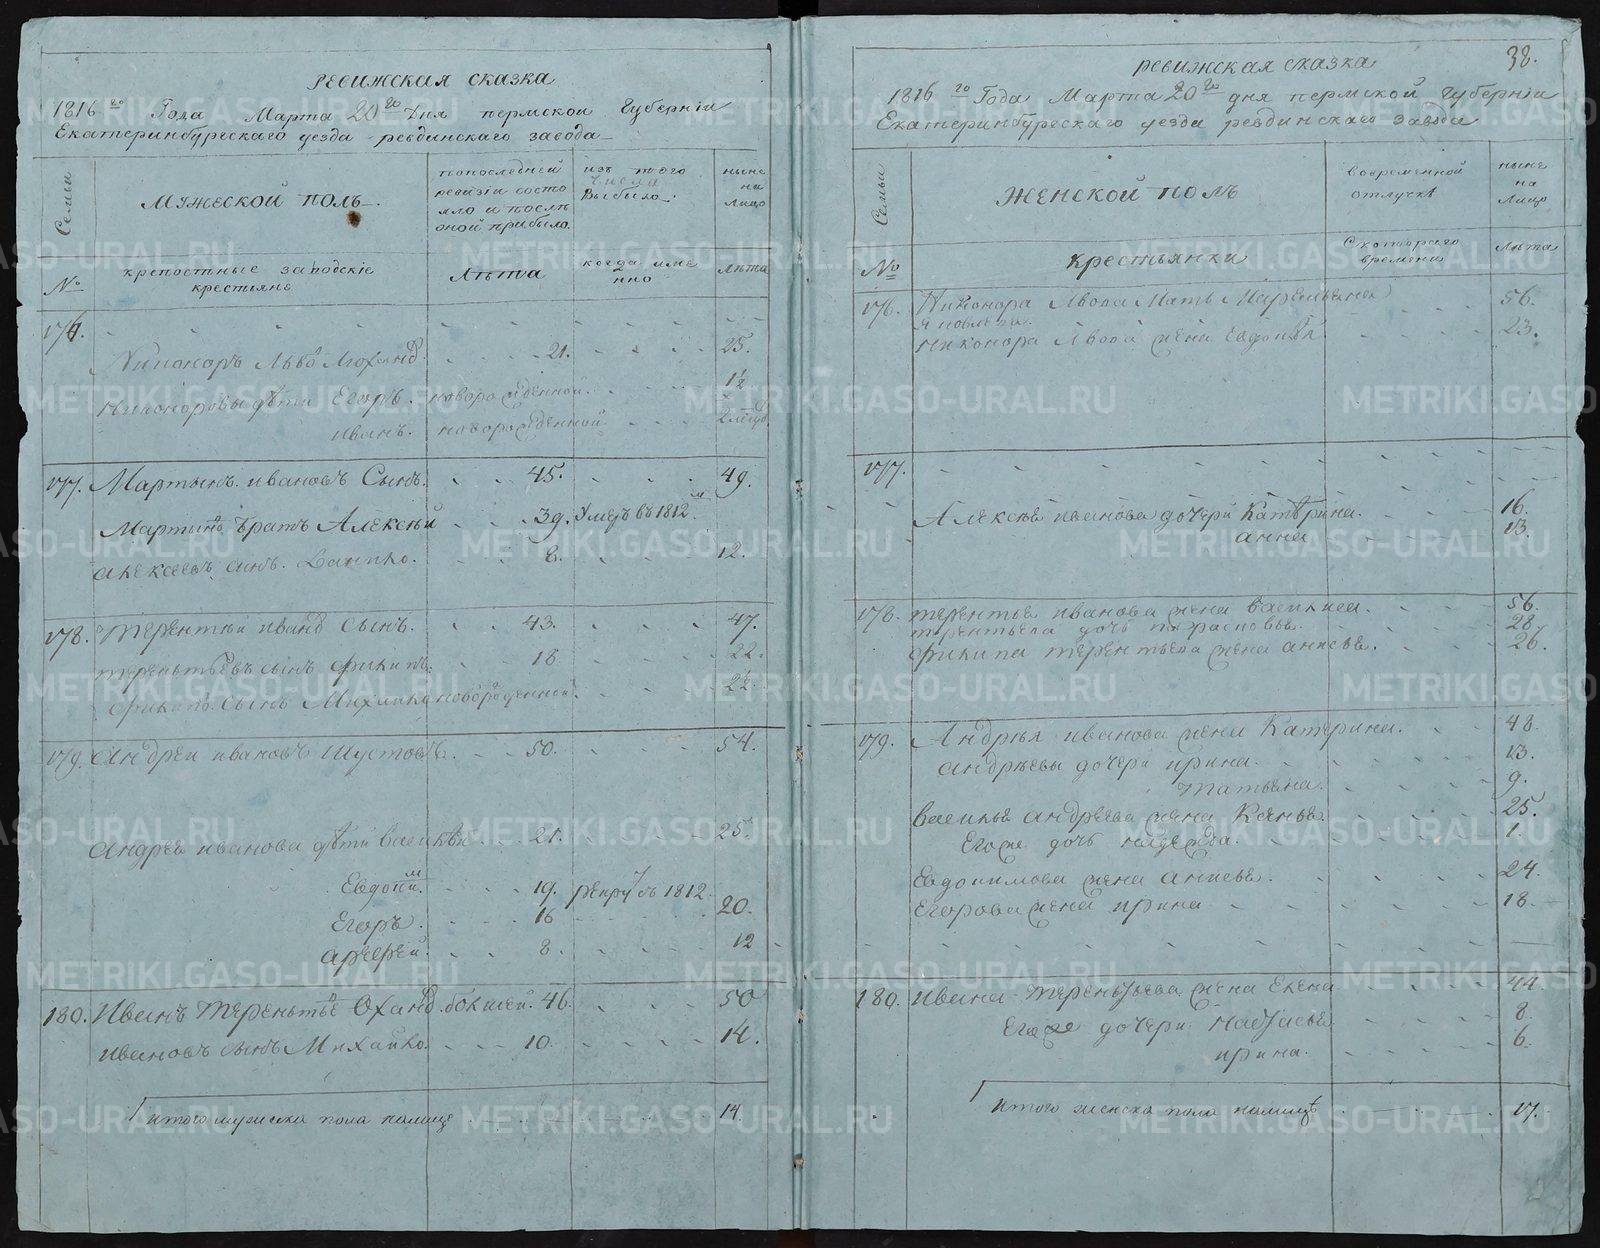 ревижская сказка
1816 го Года Марта 20 го Дня пермской Губернии
Екатеринбургскаго уезда ревдинскаго завода
Семьи
Мужеской полъ.
попоследней
ревизiи состо
яло и послѣ
оной прибыло.
изъ того
числа
выбыло.
ныне
на
лицо
№
крепостные заводскiе
крестьяне
Лѣта
когда име
нно
лѣта
176.
Никоноръ Львовъ 21. 25.
Никоровы дѣти Егоръ. новорожденной. 1½
иванъ. новорожденной
177. Мартынъ ивановъ Сынъ. 45. 49.
Мартыновъ братъ Алексѣй 39. Умеръ въ 1812 м
алексеевъ сынъ. Данило. 8. 12.
178. терентiй ивановъ сынъ. 43. 47.
терентьевъ сынъ филипъ. 18. 22.
филиповъ сынъ Михайла новорожденной 2½
179. Андрей ивановъ Шустовъ. 50. 54.
Андрея иванова дѣти василей 21. 25.
Евдоким. 19. рекрутъ 1812.
Егоръ. 16 20.
арефей. 8. 12
180. Иванъ терентьевъ 46. 50
ивановъ сынъ Михайло. 10. 14.
итого мужеска пола налице 14.
38.
ревижская сказка
1816 го Года Марта 20 го дня пермской губернiи
Екатеринбургскаго уезда ревдинскаго завода
Семьи
Женской полъ
вовременной
отлучкѣ
ныне
на
Лицо
№
крестьянки
Скотораго
времени
лѣта
176. Никонора Львова Мать Маремьяна 56.
Яковлева.
Никонора Львова жена Евдокея 23.
177.
Алексѣя иванова дочери Катерина. 16.
анна 13.
178. терентья иванова жена василиса. 56.
терентьева дочь парасковья. 28.
филипа терентьева жена анисья. 26.
179. Андрея иванова жена Катерина. 48.
андреевы дочери ирина. 13.
татьяна. 9.
василья андреева жена 25.
Егоже дочь надежда. 1.
Евдокимова жена анисья. 24.
Егорова жена ирина 18.
180. ивана терентьева жена Елена 44.
Егоже дочери настасья 8.
ирина. 6.
итого женска пола налицѣ 17.
METRIKI.GASO-URAL.RU